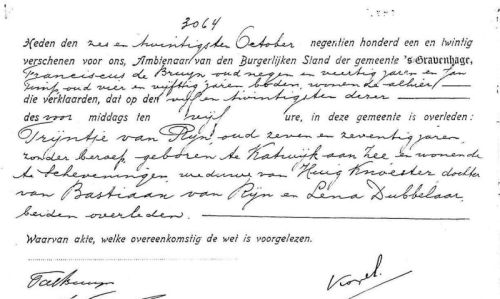 3064
Heden den zes en twintigsten October negentien honderd een en twintig
verschenen voor ons, Ambtenaar van den Burgerlijken Stand der gemeente 's-Gravenhage,
Franciscus de Bruyn oud negen en veertig jaren en Jan
oud vier en vijftig jaren boden, wonende alhier
die verklaarden, dat op den vijf en twintigsten dezer
des voor middags ten vijf ure, in deze gemeente is overleden:
Trijntje van Rijn, oud zeven en zeventig jaren,
zonder beroep, geboren te Katwijk aan Zee en wonende
te Scheveningen, weduwe van Huig Knoester dochter
van Bastiaan van Rijn en Lena Dubbelaar,
beiden overleden.
Waarvan akte, welke overeenkomstig de wet is voorgelezen.